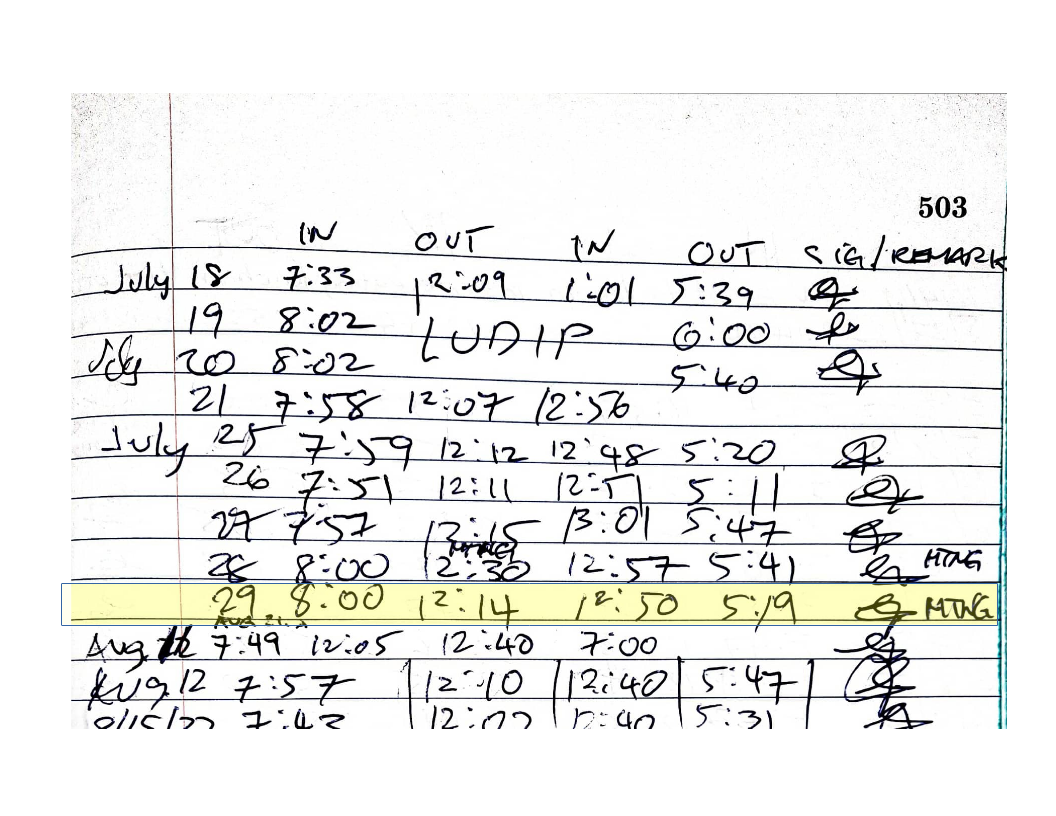 503
IN OUT IN OUT SIG/REMARK
July 18 7:33 12:09 1:01 5:39
19 8:02 LUDIP 6:00
July 20 8:02 5:40
21 7:58 12:07 12:56
July 25 7:59 12:12 12:48 5:20
26 7:51 12:11 12:51 5:11
27 7:57 12:15 13:01 5:47
MTNG
28 8:00 12:30 12:57 5:41 MTNG
29 8:00 12:14 12:50 5:19 MTNG
Aug 7:49 12:05 12:40 7:00
Aug 12 7:57 12:10 12:40 5:47
8/15/22 7:43 12:40 5:31